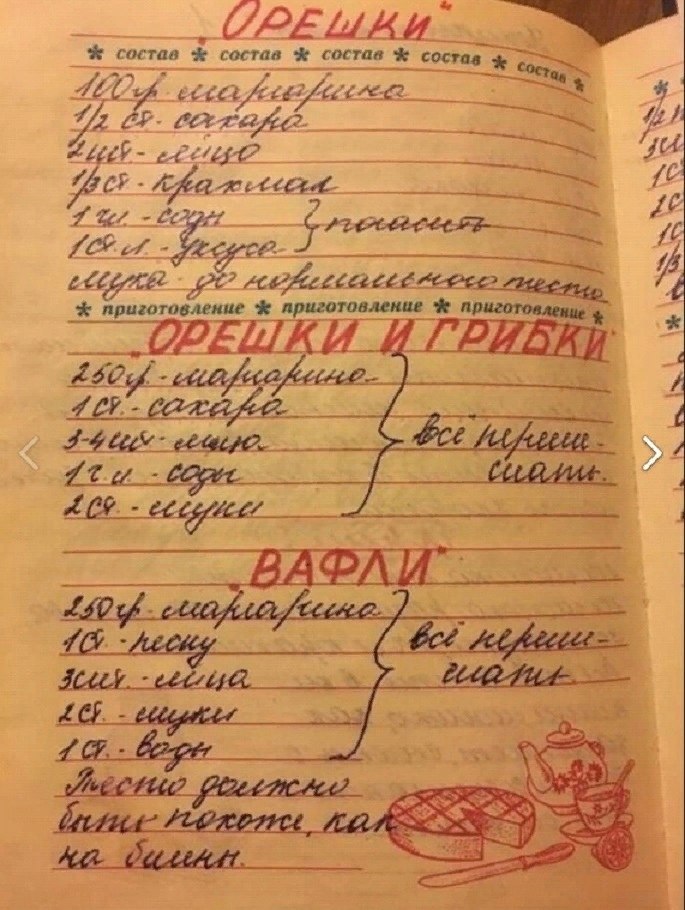 „ОРЕШКИ"
* состав * состав * состав * состав * состав *
100 гр. маргарина
1/2 ст. сахара
2 шт - яйцо
1/3 ст - крахмал
1 ч л - соды } погасить
1 ст. л - уксуса
мука - до нормального теста
* приготовление * приготовление * приготовление *
„ОРЕШКИ И ГРИБКИ"
250 гр. - маргарина
1 ст. - сахара
3-4 шт - яйца } всё переме-
1 ч. л - соды шать.
2 ст. - муки
„ВАФЛИ"
250 гр. - маргарина
1 ст. - песку } всё переме-
3 шт. - яйца шать
2 ст. - муки
1 ст. - воды
Тесто должно
быть похоже, как
на блины.